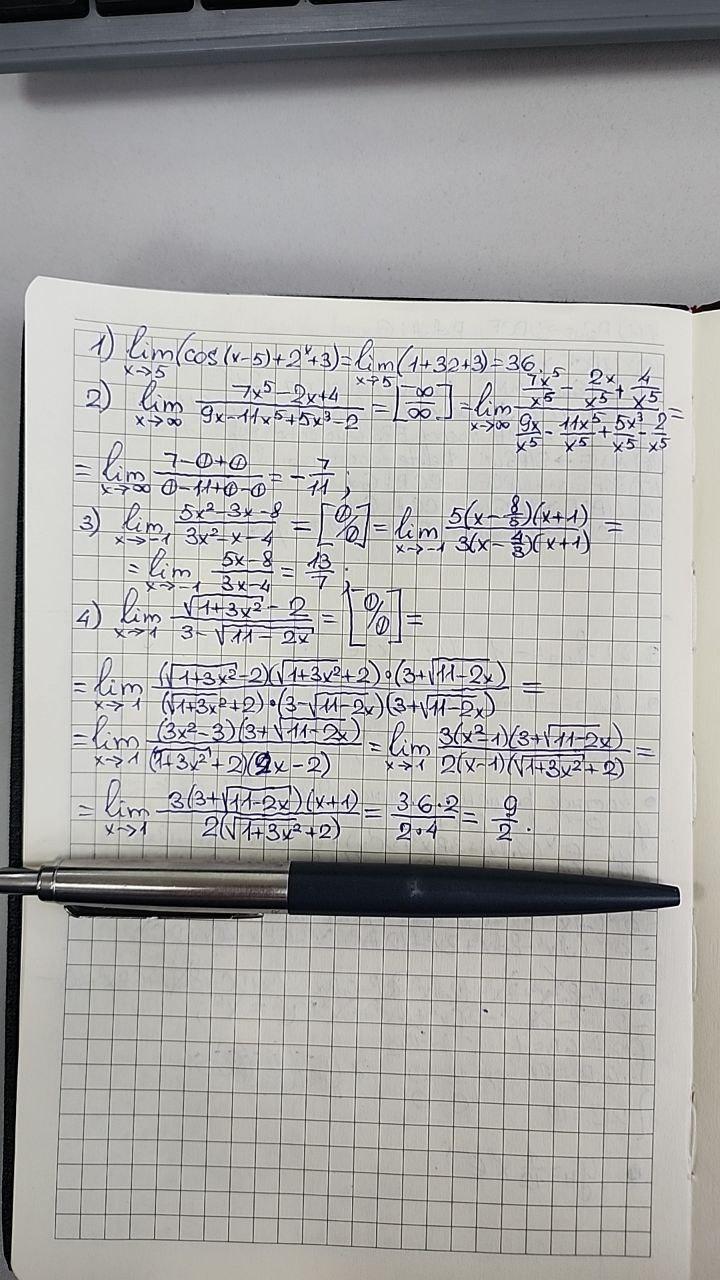 1) lim x→5 (cos(x-5)+2^x+3) = lim x→5 (1+32+3) = 36;
2) lim x→∞ (7x^5-2x+4)/(9x-11x^5+5x^3-2) = [-∞/∞] = lim x→∞ (7x^5/x^5 - 2x/x^5 + 4/x^5)/(9x/x^5 - 11x^5/x^5 + 5x^3/x^5 - 2/x^5) =
= lim x→∞ (7-0+0)/(0-11+0-0) = -7/11;
3) lim x→-1 (5x^2-3x-8)/(3x^2-x-4) = [0/0] = lim x→-1 5(x-8/5)(x+1)/3(x-4/3)(x+1) =
= lim x→-1 (5x-8)/(3x-4) = 13/7;
4) lim x→1 (√(1+3x^2)-2)/(3-√(11-2x)) = [0/0] =
= lim x→1 (√(1+3x^2)-2)(√(1+3x^2)+2)·(3+√(11-2x))/(√(1+3x^2)+2)·(3-√(11-2x))(3+√(11-2x)) =
= lim x→1 (3x^2-3)(3+√(11-2x))/(√(1+3x^2)+2)(2x-2) = lim x→1 3(x^2-1)(3+√(11-2x))/2(x-1)(√(1+3x^2)+2) =
= lim x→1 3(3+√(11-2x))(x+1)/2(√(1+3x^2)+2) = 3·6·2/2·4 = 9/2.